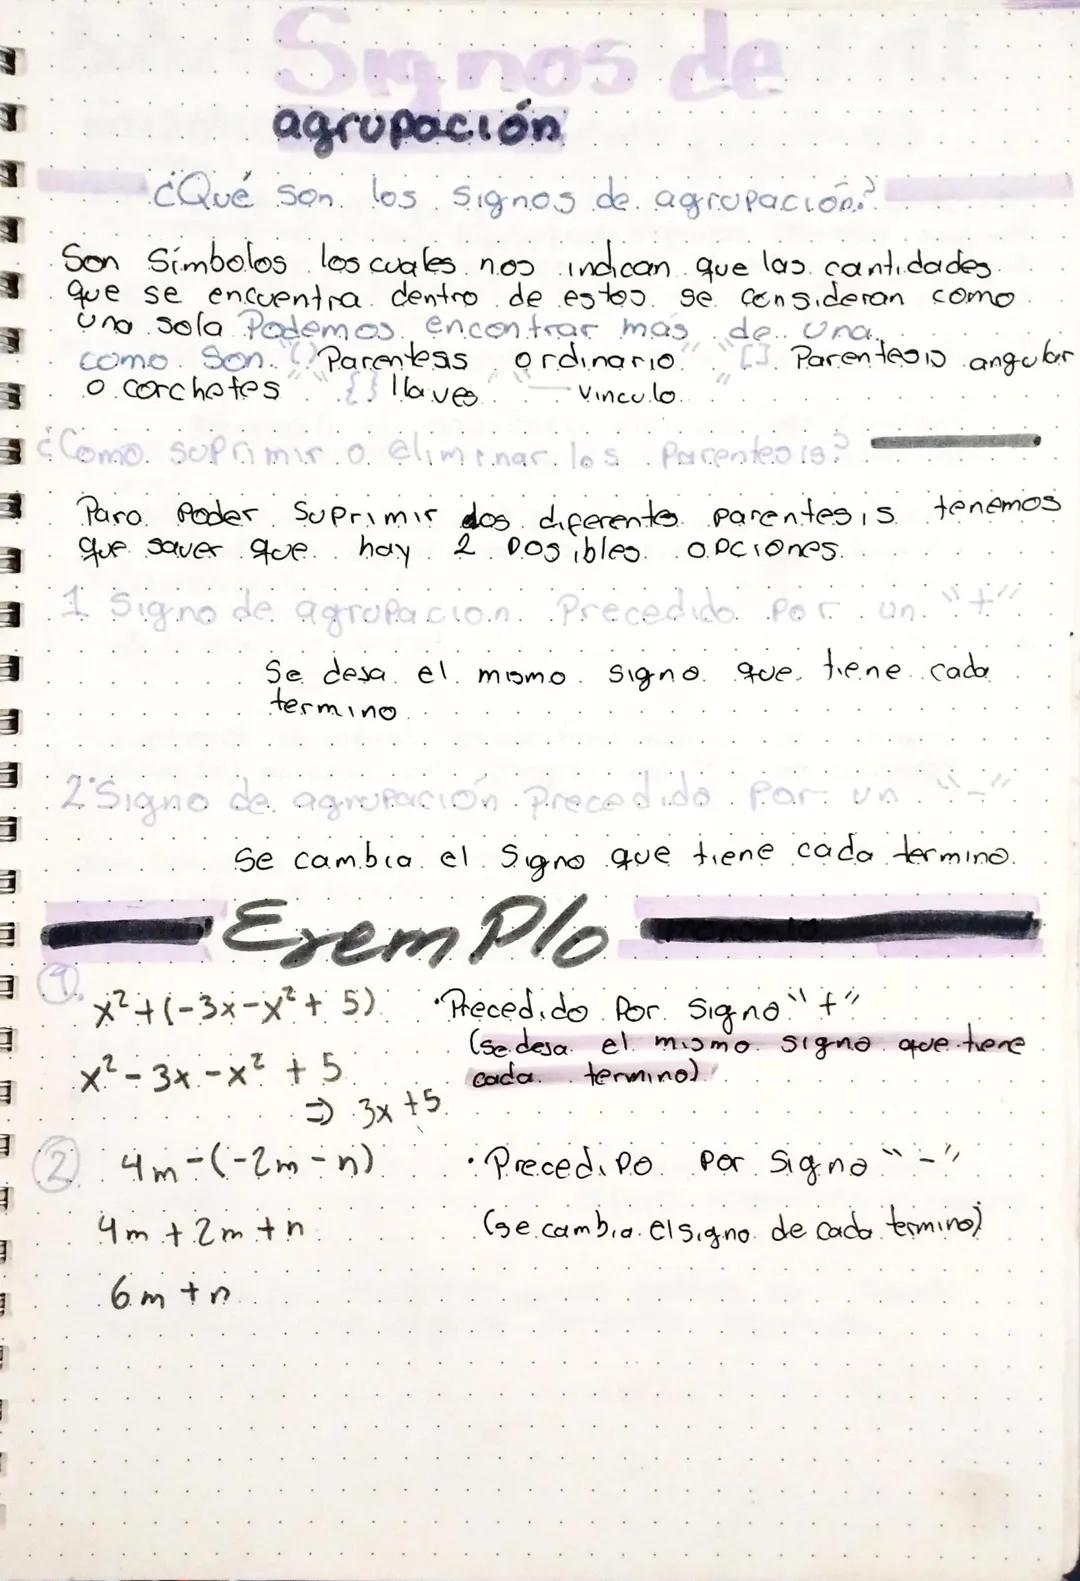 Signos de
agrupación
¿Qué son los signos de agrupación?
Son Símbolos los cuales nos indican que las cantidades
que se encuentra dentro de estos se consideran como
una sola Podemos encontrar mas de una
como son "() Parentesis ordinario" "[] Parentesis angular
o corchetes" "{} llaves" "— vinculo
¿Como suprimir o eliminar los Parentesis?
Para Poder Suprimir dos diferentes parentesis tenemos
que saver que hay 2 posibles opciones
1 Signo de agrupacion Precedido Por un "+"
Se desa el mismo signo que tiene cada
termino
2° Signo de agrupación precedido por un "-"
Se cambia el signo que tiene cada termino.
Exemplo
1. x² + (-3x - x² + 5) • Precedido Por Signo "+"
(se desa el mismo signo que tiene
cada termino)
x² - 3x - x² + 5
⇒ 3x + 5
2 4m - (-2m - n) • Precedido por Signo "-"
4m + 2m + n (se cambia el signo de cada termino)
6m + n